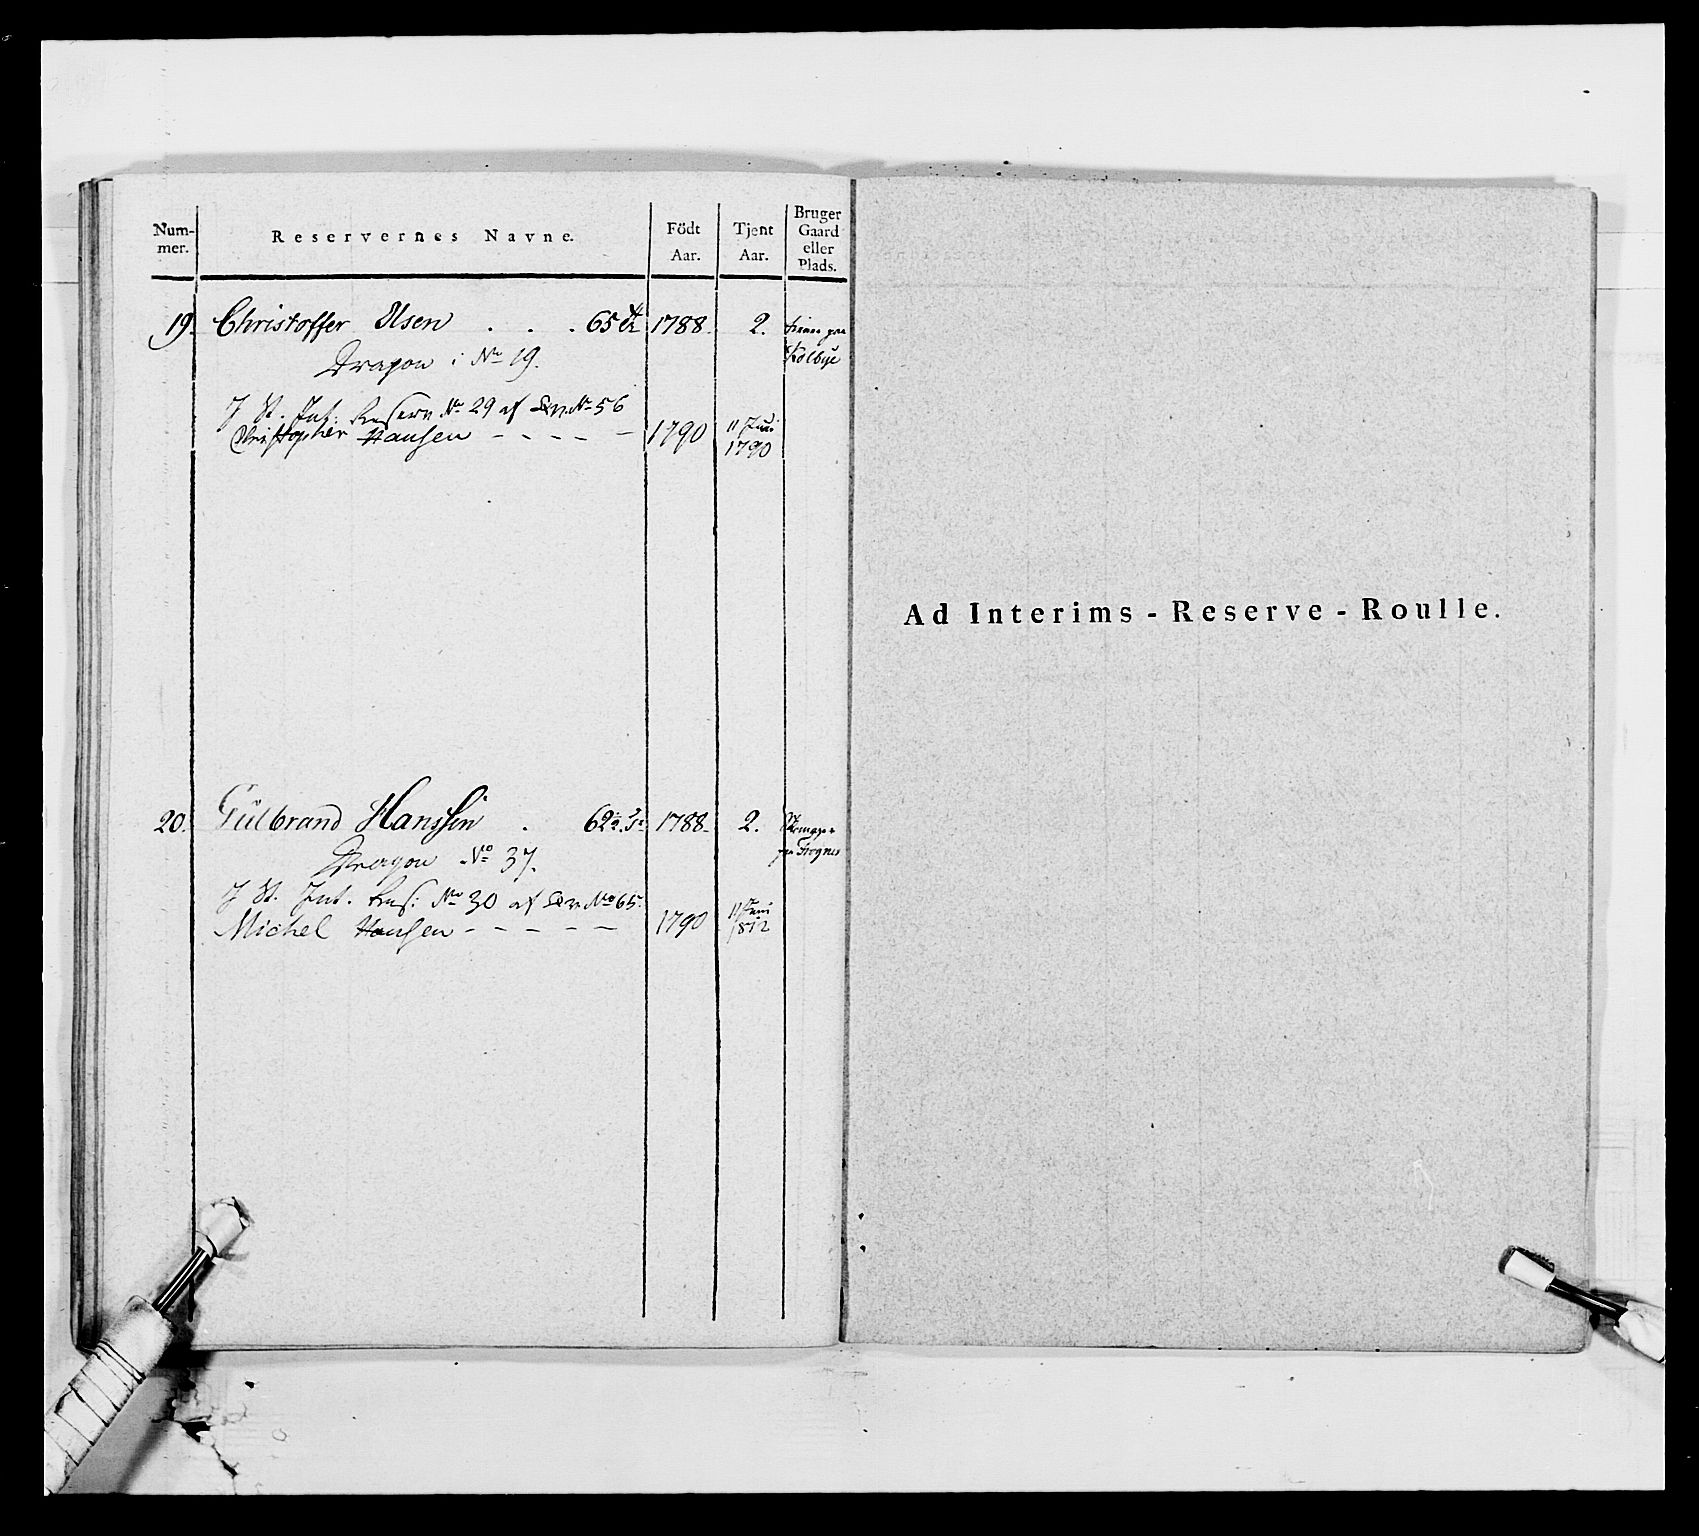 Num-
mer.
Reservernes Navne.
Födt
Aar.
Tjent
Aar.
Bruger
Gaard
eller
Plads.
19. Christoffer Olsen . . . 65 1788. 2.
Dragon i No 19.
J St. Int. Reserv No 29 af No 56
Christopher Hansen - - - - 1790 11 Juni
1790
20. Gulbrand Hanssen . 62 1788. 2.
Dragon No 37.
J St. Int. Res: No 30 af No 65.
Michel Hansen - - - - - 1790 11 Juni
1812
Ad Interims - Reserve - Roulle.